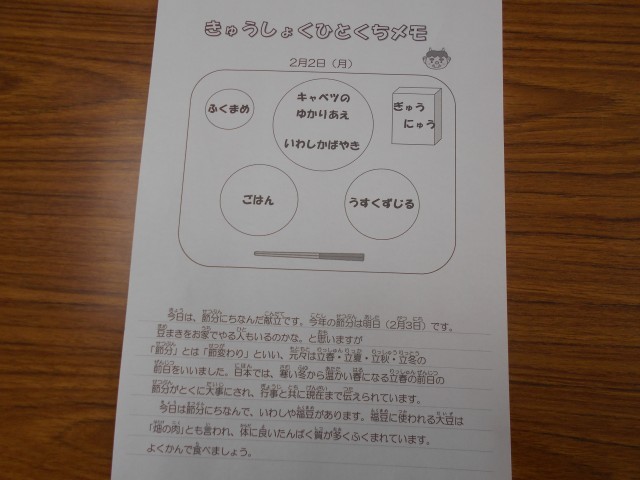 きゅうしょくひとくちメモ
2月2日（月）
ふくまめ
キャベツの
ゆかりあえ
いわしかばやき
ぎゅう
にゅう
ごはん
うすくずじる
今日は、節分にちなんだ献立です。今年の節分は明日（2月3日）です。
豆まきをお家でやる人もいるのかな。と思いますが
「節分」とは「節変わり」といい、元々は立春・立夏・立秋・立冬の
前日をいいました。日本では、寒い冬から温かい春になる立春の前日の
節分がとくに大事にされ、行事と共に現在まで伝えられています。
今日は節分にちなんで、いわしや福豆があります。福豆に使われる大豆は
「畑の肉」とも言われ、体に良いたんぱく質が多くふくまれています。
よくかんで食べましょう。